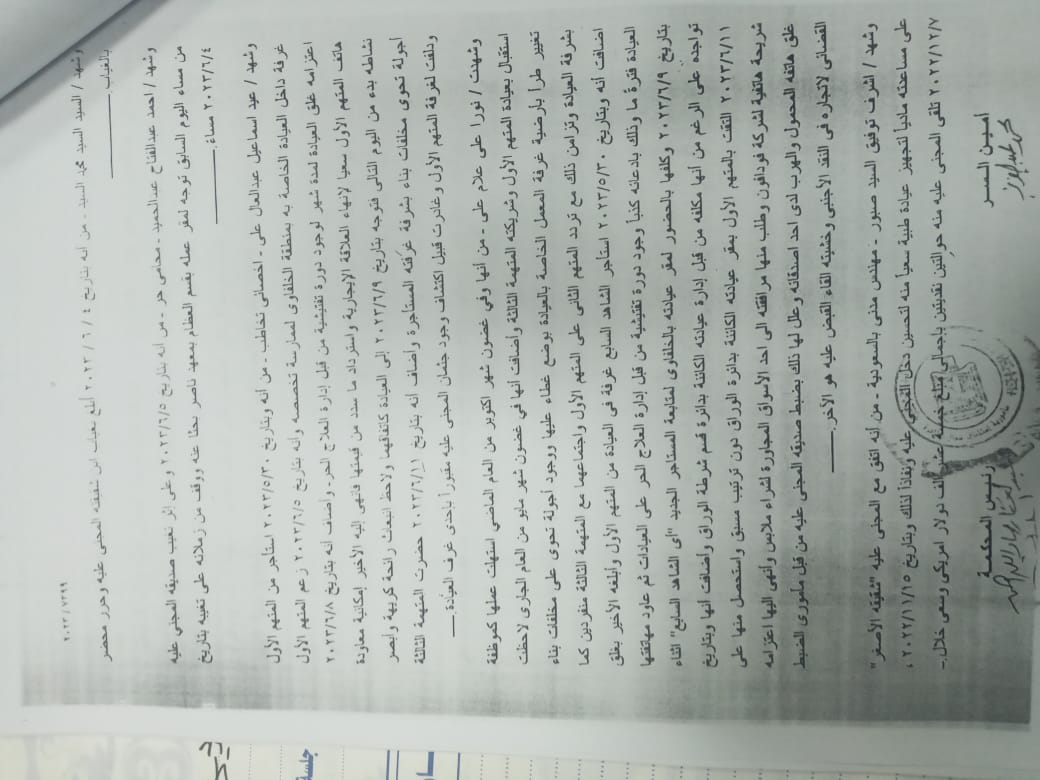 ٢٠٢٣/٧٢٩٩
وشهد / السيد السيد محمد السيد - من أنه بتاريخ ٢٠٢٣/٦/٤ أبلغ بغياب ابن شقيقته المجنى عليه وحرر محضر
بالغياب
وشهد / احمد عبدالفتاح عبدالحميد - محامى حر - من أنه بتاريخ ٢٠٢٣/٦/٥ وعلى إثر تغيب صديقه المجني عليه
من مساء اليوم السابق توجه لمقر عمله بقسم العظام بمعهد ناصر بحثا عنه ووقف من زملائه على تغيبه بتاريخ
٢٠٢٣/٦/٤ مساءً.
وشهد / عيد اسماعيل عبدالعال على - اخصائى تخاطب - من أنه وبتاريخ ٢٠٢٣/٥/٣٠ استأجر من المتهم الأول
غرفة داخل العيادة الخاصة به بمنطقة الخلفاوى لممارسة تخصصه وأنه بتاريخ ٢٠٢٣/٦/٥ زعم المتهم الأول
اعتزامه غلق العيادة لمدة شهر لوجود دورة تفتيشية من قبل إدارة العلاج الحر - وأضاف أنه بتاريخ ٢٠٢٣/٦/٨
هاتف المتهم الأول سعيا لإنهاء العلاقة الإيجارية واسترداد ما سدد من قيمتها فانهى إليه الأخير إمكانية معاودة
نشاطه بدء من اليوم التالى فتوجه بتاريخ ٢٠٢٣/٦/٩ إلى العيادة كاتفاقهما ولاحظ انبعاث رائحة كريهة وأبصر
أجولة تحوى مخلفات بناء بشرفة غرفته المستأجرة وأضاف أنه بتاريخ ٢٠٢٣/٦/١١ حضرت المتهمة الثالثة
ودلفت لغرفة المتهم الأول وغادرت قبيل اكتشاف وجود جثمان المجنى عليه مقبوراً بإحدى غرف العيادة.
وشهدت / نورا على علام على - من أنها وفى غضون شهر اكتوبر من العام الماضى استهلت عملها كموظفة
استقبال بعيادة المتهم الأول وشريكته المتهمة الثالثة وأضافت أنها فى غضون شهر مايو من العام الجارى لاحظت
تغيير طرأ بأرضية غرفة المعمل الخاصة بالعيادة بوضع غطاء عليها ووجود أجولة تحوى على مخلفات بناء
بشرفة العيادة وتزامن ذلك مع تردد المتهم الثانى على المتهم الأول واجتماعهما مع المتهمة الثالثة منفردين كما
اضافت أنه وبتاريخ ٢٠٢٣/٥/٣٠ استأجر الشاهد السابع غرفة فى العيادة من المتهم الأول وأبلغه الأخير بغلق
العيادة فترة ما وذلك بادعائه كذباً وجود دورة تفتيشية من قبل إدارة العلاج الحر على العيادات ثم عاود مهاتفتها
بتاريخ ٢٠٢٣/٦/٩ وكلفها بالحضور لمقر عيادته بالخلفاوى لمتابعة المستأجر الجديد "أى الشاهد السابع" اثناء
تواجده على الرغم من أنها مكلفه من قبل إدارة عيادته الكائنة بدائرة قسم شرطة الوراق وأضافت أنها وبتاريخ
٢٠٢٣/٦/١١ التقت بالمتهم الأول بمقر عيادته الكائنة بدائرة الوراق دون ترتيب مسبق واستحصل منها على
شريحة هاتفية لشركة فودافون وطلب منها مرافقته الى احد الأسواق المجاورة لشراء ملابس وأنهى إليها اعتزامه
غلق هاتفه المحمول والهرب لدى أحد اصدقائه وعلل لها ذلك بضبط صديقه المجنى عليه من قبل مأمورى الضبط
القضائى لاتجاره فى النقد الأجنبى وخشيته القاء القبض عليه هو الآخر.
وشهد / اشرف توفيق السيد صبور - مهندس مدنى بالسعودية - من أنه اتفق مع المجنى عليه "شقيقه الأصغر"
على مساعدته مادياً لتجهيز عيادة طبية سعياً منه لتحسين دخل المجنى عليه ونفاذاً لذلك وبتاريخ ٢٠٢٢/١١/١٥ ،
٢٠٢٢/١٢/٧ تلقى المجنى عليه منه حوالتين نقديتين بإجمالى مبلغ خمسة عشر الف دولار امريكى وسعى خلال-
أمين السر
رئيس المحكمة
جلسة